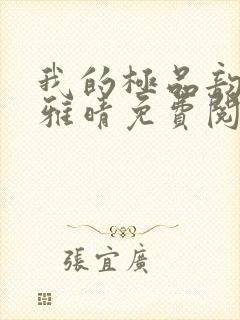 我的極品
雅晴免費閱
張宜廣